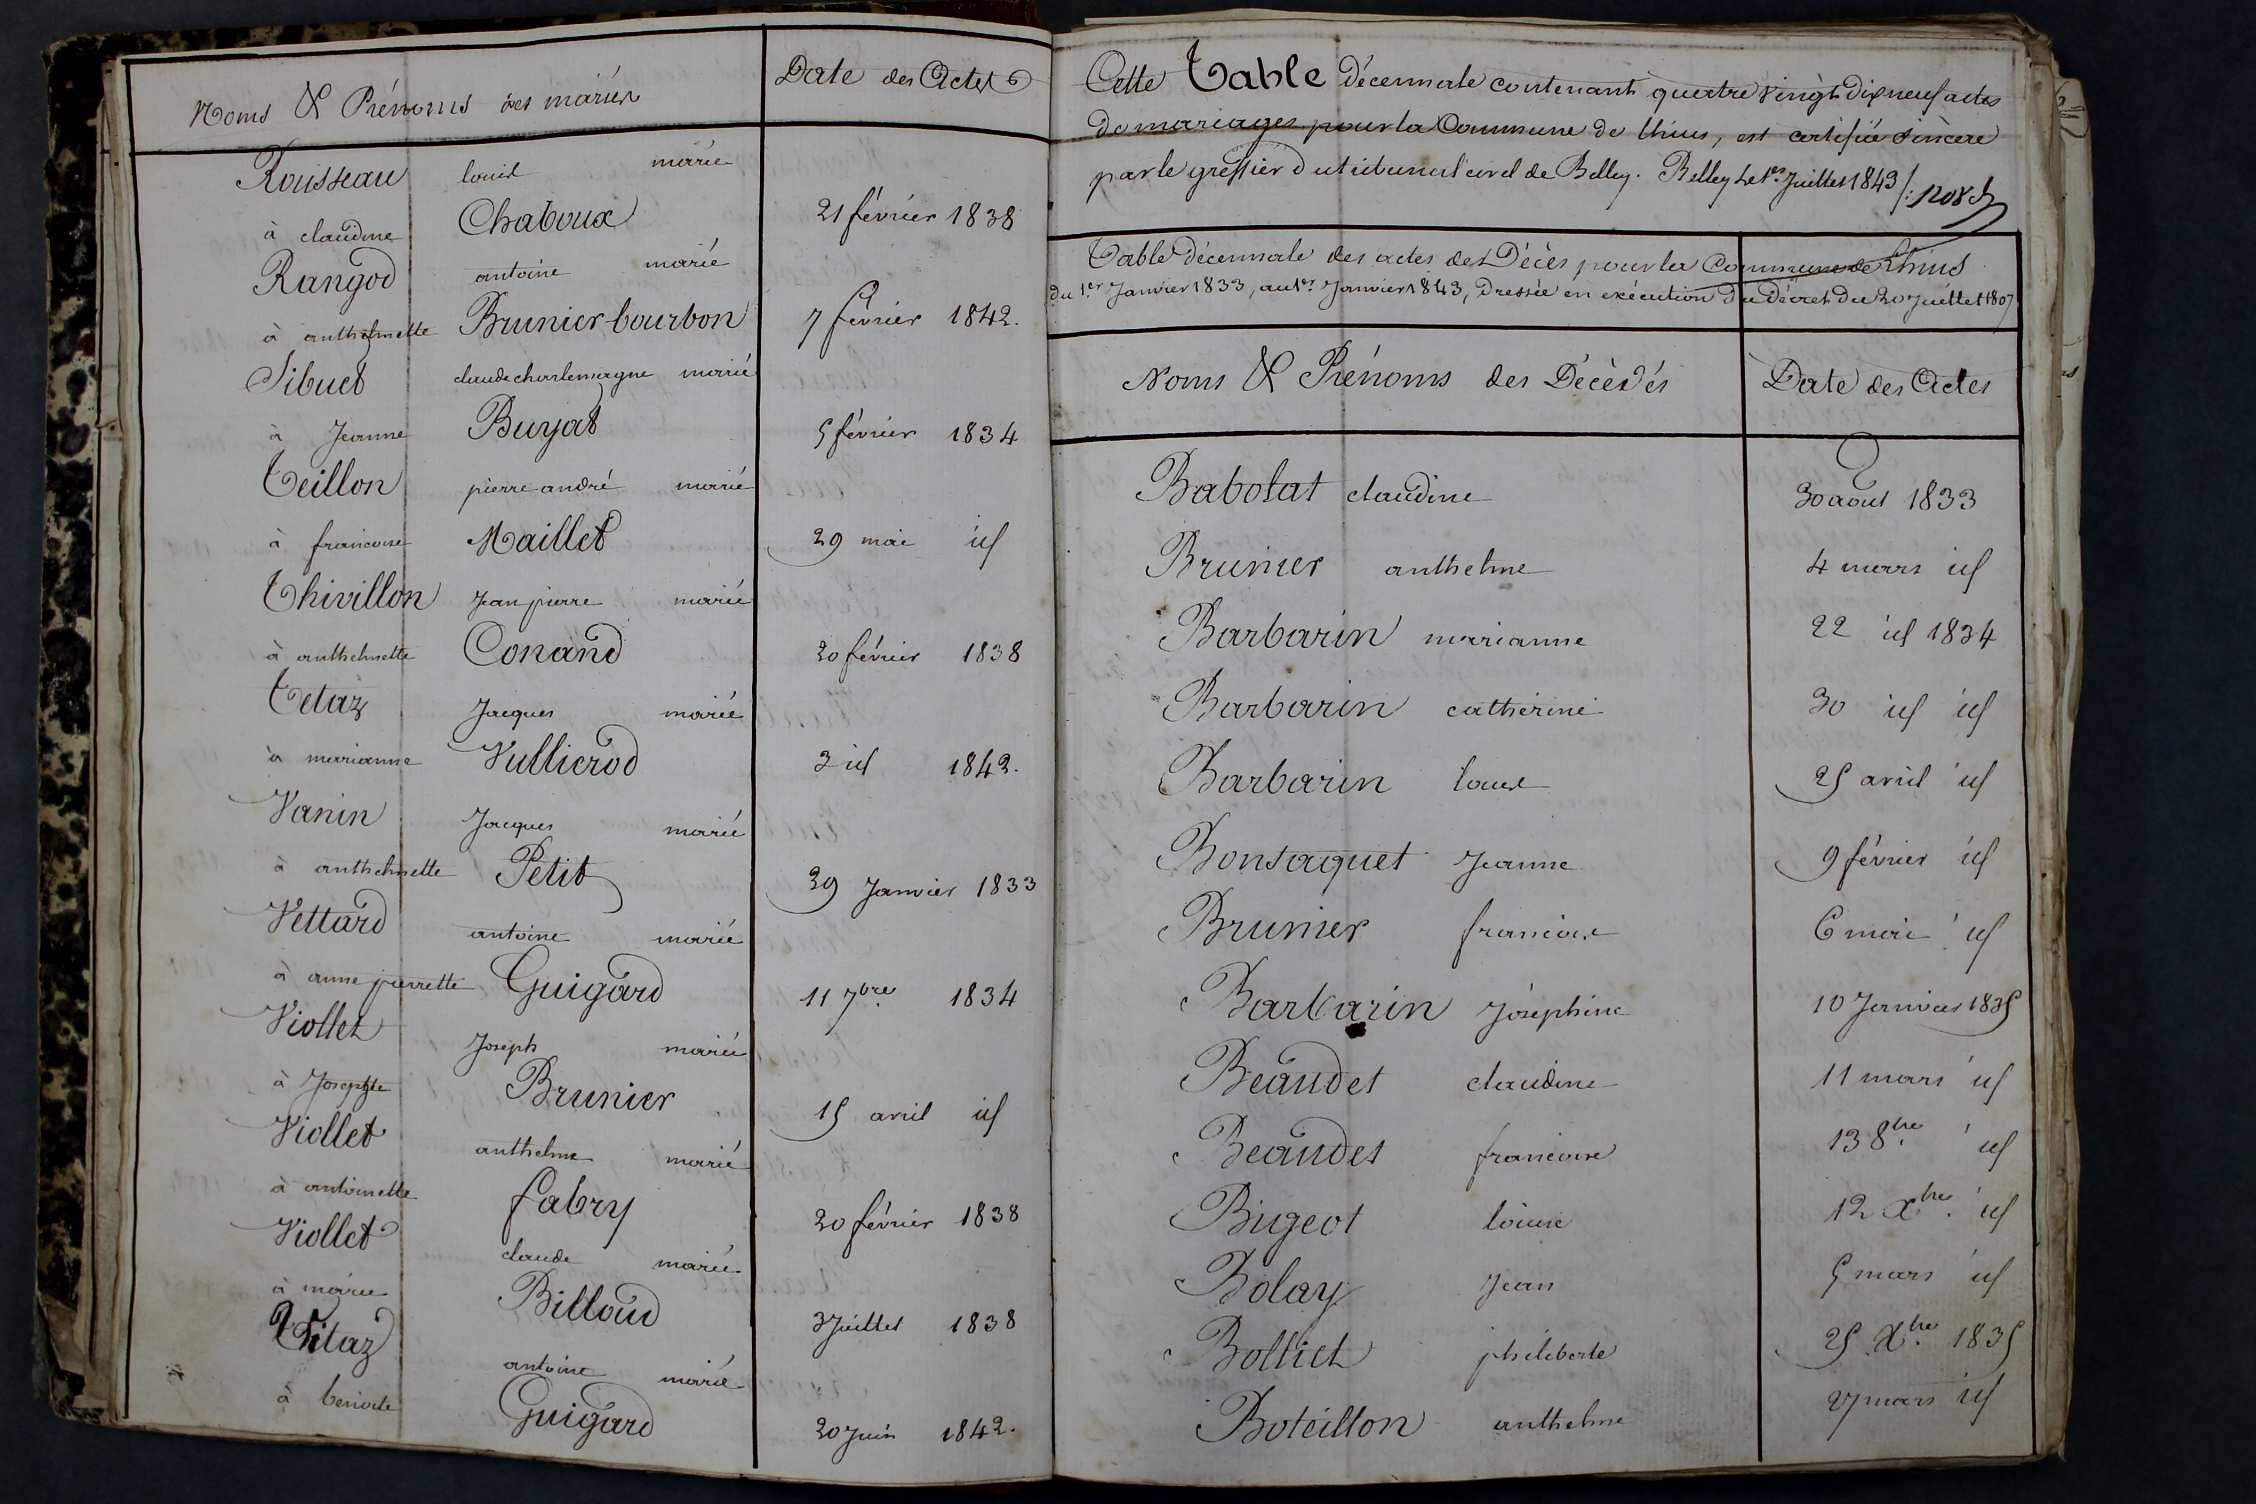 Noms & Prénoms des mariés
Date des Actes
Rousseau louis marié
à claudine Chaboux 21 février 1838
Rangod antoine marié
à anthelmette Brunier-bourbon 7 février 1842.
Sibuet claude charlemagne marié
à Jeanne Buyat 5 février 1834
Teillon pierre andré marié
à francoise Maillet 29 mai id
Thivillon Jean pierre marié
à anthelmette Conand 20 février 1838
Tetaz Jacques marié
à marianne Vullierod 3 id 1842.
Vanin Jacques marié
à anthelmette Petit 29 Janvier 1833
Vettard antoine marié
à anne pierrette Guigard 11 7bre 1834
Viollet Joseph marié
à Josephte Brunier 15 avril id
Viollet anthelme marié
à antoinette fabry 20 février 1838
Viollet claude marié
à marie Billoud 3 Juillet 1838
Vitaz antoine marié
à benoite Guigard 20 Juin 1842.
Cette Table décennale contenant quatre vingt dix neuf actes
de mariages pour la Commune de lhuis, est certifiée sincère
par le greffier du tribunal civil de Belley. Belley le 1er Juillet 1843 /.
Table décennale des actes des Décès pour la Commune de Lhuis
du 1er Janvier 1833, au 1er Janvier 1843, Dressée en exécution du Décret du 20 Juillet 1807
Noms & Prénoms des Décédés
Date des Actes
Babolat claudine 30 aout 1833
Brunier anthelme 4 mars id
Barbarin marianne 22 id 1834
Barbarin catherine 30 id id
Barbarin louis 25 avril id
Bonsaquet Jeanne 9 février id
Brunier francoise 6 mai id
Barbarin Joséphine 10 Janvier 1835
Beaudet claudine 11 mars id
Beaudet francoise 13 8bre id
Bigeot louise 12 Xbre id
Bolay Jean 5 mars id
Bolliet philiberte 25 Xbre 1835
Boteillon anthelme 27 mars id